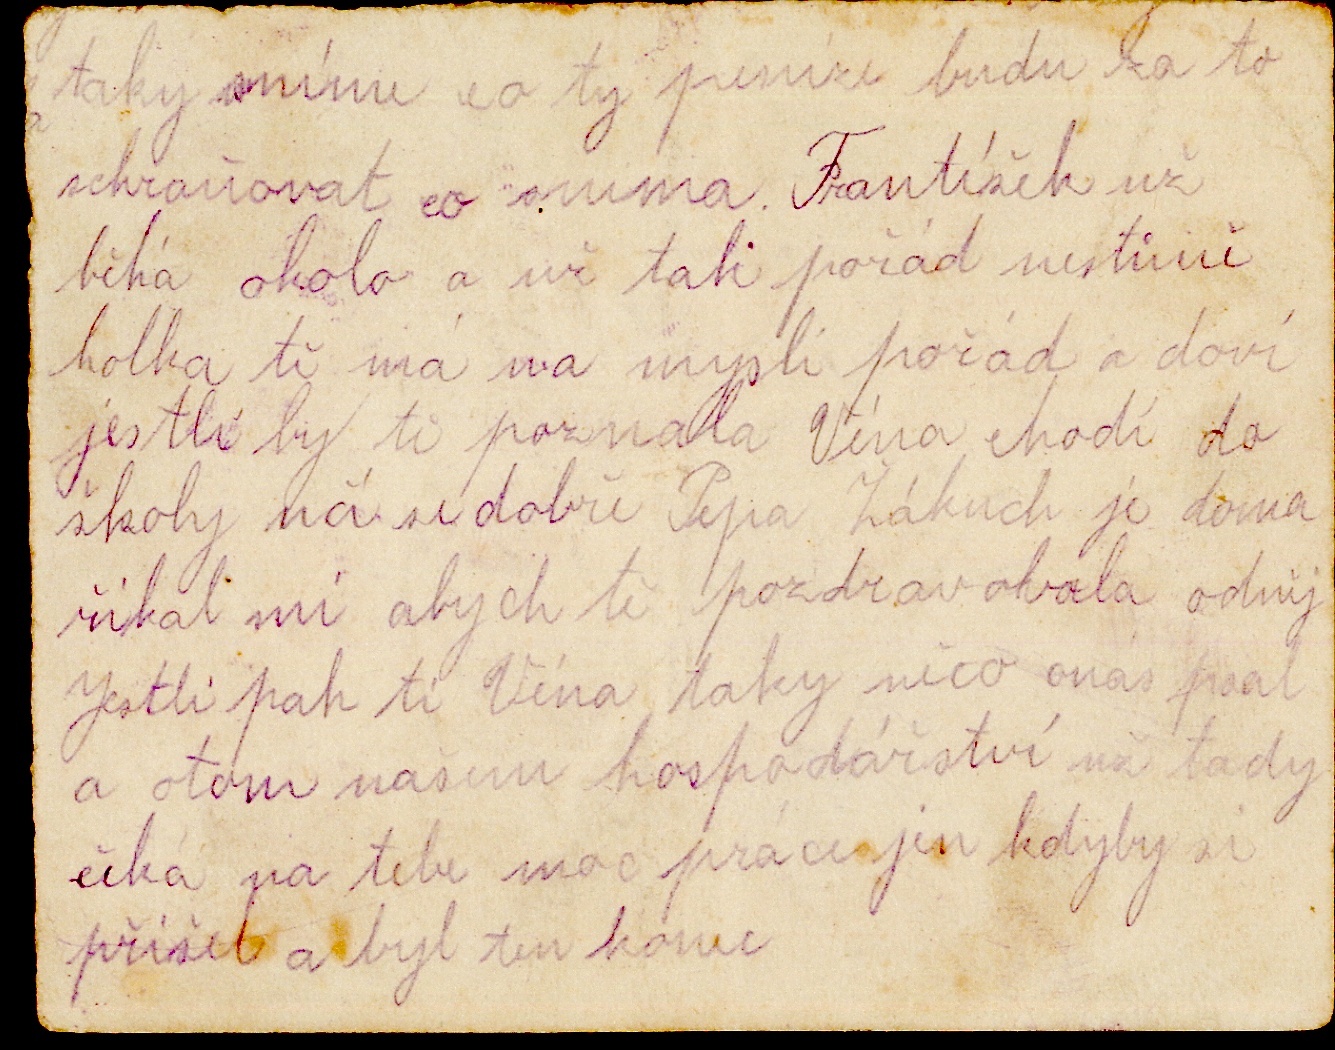 taky sníme co ty penize budu za to
schraňovat co snima. Františék už
běhá okolo a už tak pořád nestůně
holka tě má na mysli pořád a doví
jestli by tě poznala Véna chodí do
školy učí se dobře Pepa Žákuch je doma
říkal mi abych tě pozdravovala odněj
Jestli pak ti Véna taky něco onás psal
a otom našem hospodářství už tady
čeká na tebe moc práce jen kdyby si
přišel a byl ten konec